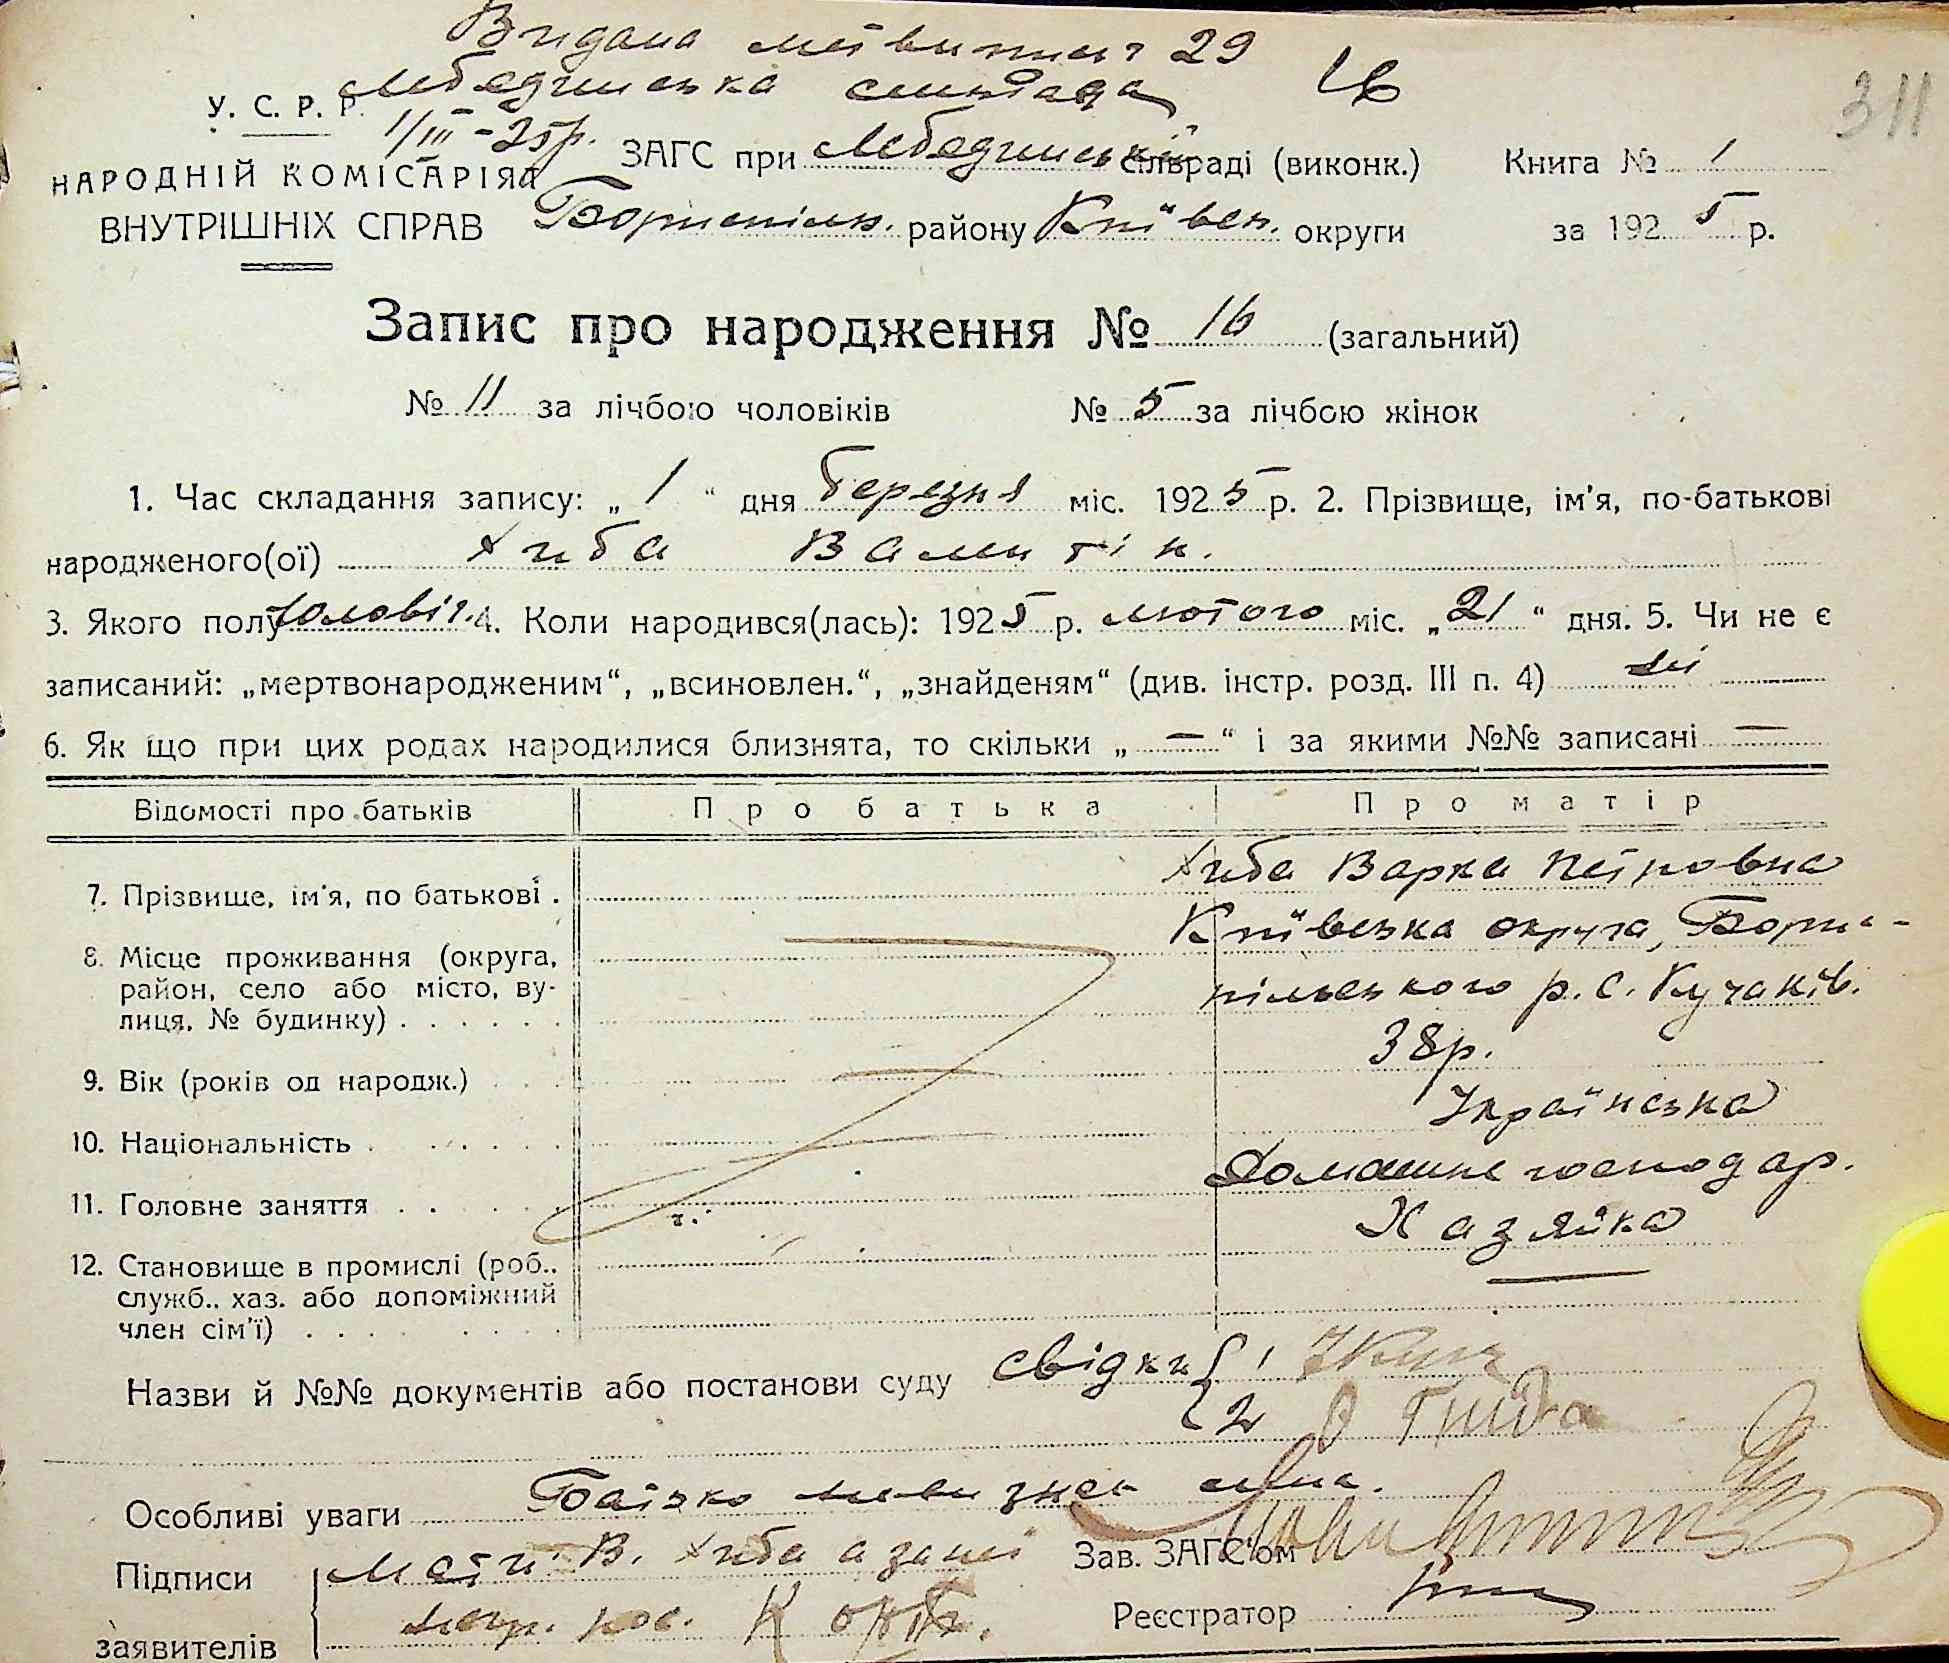 Видана метвитись 29 16
У. С. Р. Р. Лебединська сільрада 311
1/III-25р. ЗАГС при Лебединській сільраді (виконк.) Книга № 1
НАРОДНІЙ КОМІСАРІЯТ
ВНУТРІШНІХ СПРАВ Бориспільн. району Київськ. округи за 1925 р.
Запис про народження № 16 (загальний)
№ 11 за лічбою чоловіків № 5 за лічбою жінок
1. Час складання запису: „ 1 “ дня березня міс. 1925 р. 2. Прізвище, ім'я, по-батькові
народженого(ої) Хиба Валентін.
3. Якого полу чоловіч. 4. Коли народився(лась): 1925 р. лютого міс. „21“ дня. 5. Чи не є
записаний: „мертвонародженим“, „всиновлен.“, „знайденям“ (див. інстр. розд. III п. 4) ні
6. Як що при цих родах народилися близнята, то скільки „ — “ і за якими №№ записані —
Відомості про батьків Про батька Про матір
7. Прізвище, ім'я, по батькові . Хиба Варка Петровна
8. Місце проживання (округа, Київська округа, Борис-
район, село або місто, ву- пільського р. с. Кучаків.
лиця, № будинку) . . . . . .
9. Вік (років од народж.) 38р.
10. Національність . . . . . . Українська
11. Головне заняття . . . . . Домашнє господар.
12. Становище в промислі (роб., Хазяйка
служб., хаз. або допоміжний
член сім'ї) . . . . . . . .
Назви й №№ документів або постанови суду свідки { 1
2
Особливі уваги Батько
Підписи мати В. Хиба а за неї Зав. ЗАГС'ом
заявителів Реєстратор